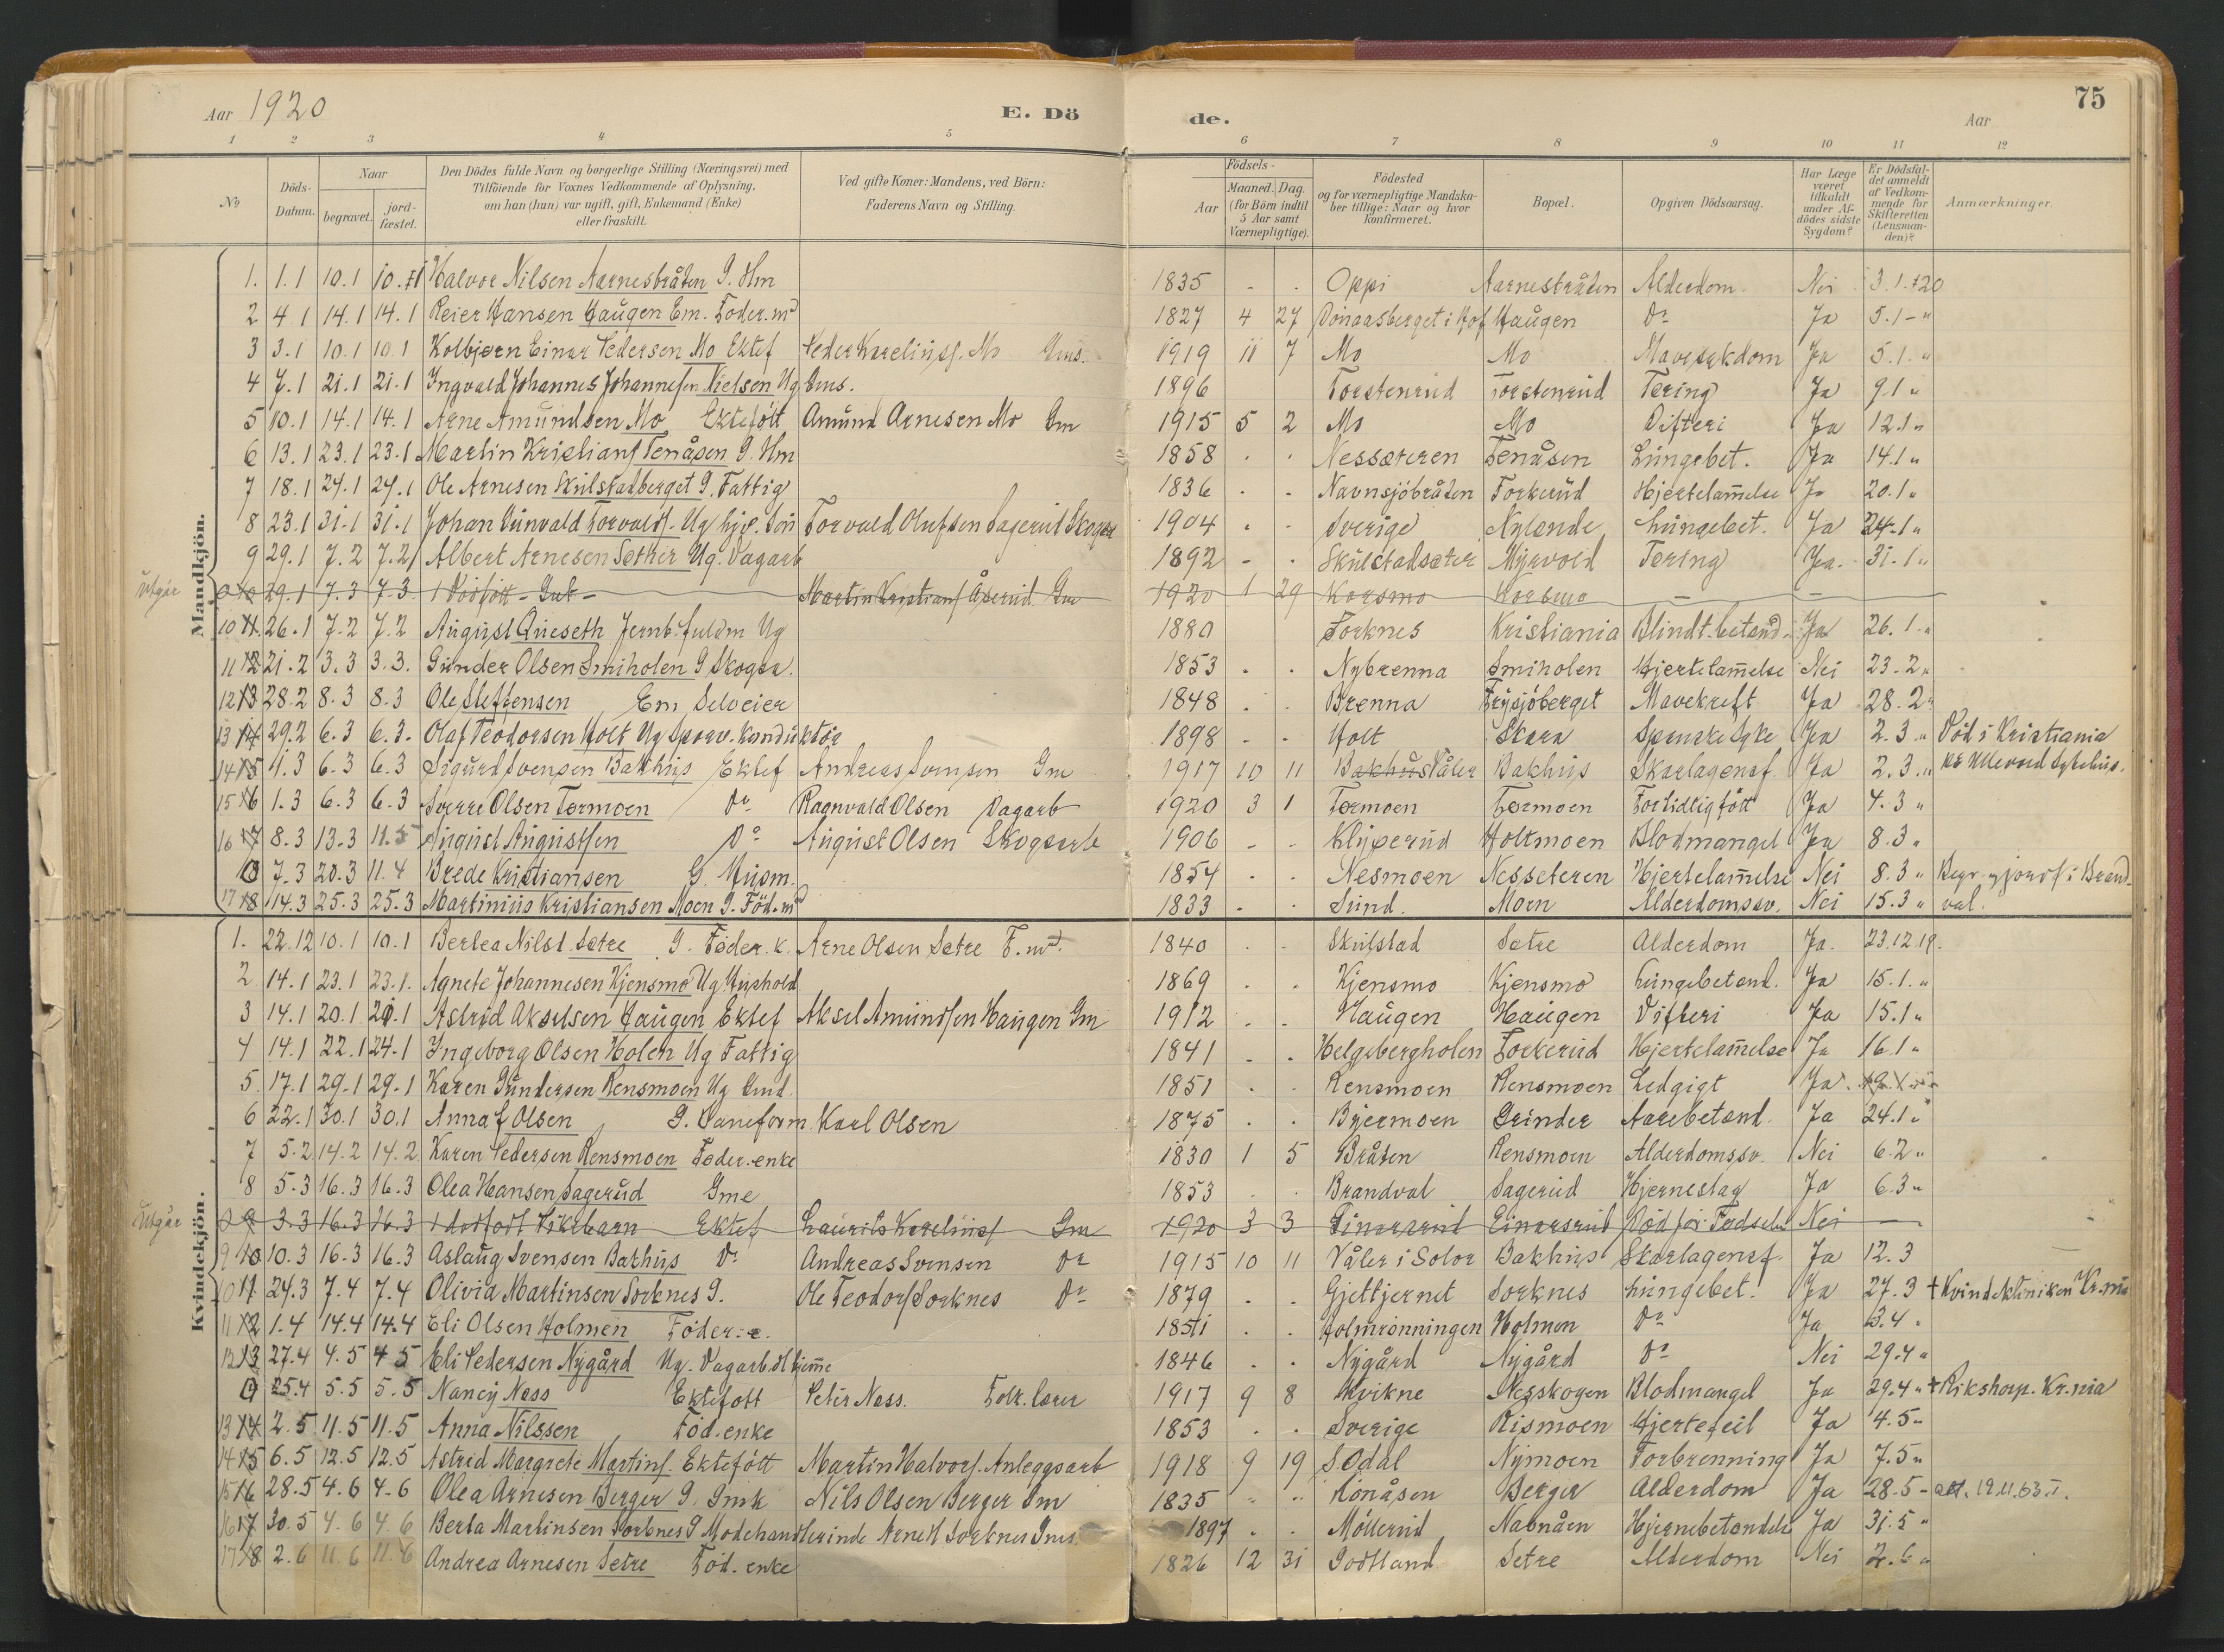 Aar 1920 E. Dö de. Aar 75
1 2 3 4 5 6 7 8 9 10 11 12
No
Döds-Datum.
Naar
begravet.
jord-fæstet.
Den Dödes fulde Navn og borgerlige Stilling (Næringsvei) med
Tilföiende for Voxnes Vedkommende af Oplysning,
om han (hun) var ugift, gift, Enkemand (Enke)
eller fraskilt.
Ved gifte Koner: Mandens, ved Börn:
Faderens Navn og Stilling.
Födsels-
Aar
Maaned. Dag.
(for Börn indtil
5 Aar samt
Værnepligtige).
Födested
og for værnepligtige Mandska-
ber tillige: Naar og hvor
konfirmeret.
Bopæl.
Opgiven Dödsaarsag.
Har Læge
været
tilkaldt
under Af-
dödes sidste
Sygdom?
Er Dödsfal-
det anmeldt
af Vedkom-
mende for
Skifteretten
(Lensman-
den)?
Anmærkninger.
Mandkjön.
1. 1.1 10.1 10.1 Halvor Nilsen Aarnesbråten G. Hm 1835 - . Oppi Aarnesbråten Alderdom. Nei 3.1.20
2 4.1 14.1 14.1 Reier Hansen Haugen Em. Föder.md 1827 4 27 i Hof Haugen Do Ja 5.1 - "
3 3.1 10.1 10.1 Kolbjørn Einar Pedersen Mo Ektef Peder Kareliusf. Mo Gms. 1919 11 7 Mo Mo Mavesykdom Ja 5.1. "
4 7.1 21.1 21.1 Ingvald Johannes Johannesen Nielsen Ug Gms. 1896 Torstenrud Torstenrud Tering Ja 9.1 "
5 10.1 14.1 14.1 Arne Amundsen Mo Ektefött Amund Arnesen Mo Gm 1915 5 2 Mo Mo Difteri Ja 12.1 "
6 13.1 23.1 23.1 Martin Kristians Tenåsen G. Hm 1858 . . Nessæteren Tenåsen Lungebet. Ja 14.1 "
7 18.1 24.1 24.1 Ole Arnesen Skulstadberget G. Fattig 1836 . - Navnsjöbråten Torkerud Hjertelam̄else Ja 20.1 "
8 23.1 31.1 31.1 Johan Gunvald Torvalds. Ug hjv. Sön Torvald Olufsen Sagerud Skogsa 1904 . - Sverige Nylende Lungebet. Ja 24.1 "
9 29.1 7.2 7.2 Albert Arnesen Sæther Ug. Dagarb 1892 - . Skulstadsæter Myrvold Tering Ja. 31.1 "
Utgår 29.1 7.3 7.3 1 Dödfött - Gut - Martin Kristians Åserud Gm 1920 1 29 Korsmo Korsmo - -
10 11 26.1 7.2 7.2 August Queseth Jernb.fuldm Ug 1880 Torknes Kristiania Blindt.betend. Ja 26.1. "
11 12 21.2 3.3 3.3. Gunder Olsen Smiholen G Skogsa. 1853 . . Nybrenna Smiholen Hjertelam̄else Nei 23.2 "
12 13 28.2 8.3 8.3 Ole Steffensen Em Selveier 1848 . . Brenna Frysjöberget Mavekreft Ja 28.2 "
13 14 29.2 6.3 6.3. Olaf Teodorsen Holt Ug Sporv. Konduktör 1898 - - Holt Skara Spanske Syke Ja 2.3 " Död i Kristiania
14 15 1.3 6.3 6.3 Sigurd Svensen Bakhus Ektef Andreas Svensen Gm 1917 10 11 Bakhus Våler Bakhus Skarlagensf. Ja 2.3. " på Ullevold Sykehus.
15 16 1.3 6.3 6.3 Sverre Olsen Tormoen Do Ragnvald Olsen Dagarb 1920 3 1 Tormoen Tormoen Fortidlig fött Ja 4.3 "
16 17 8.3 13.3 11.5 August Augustsen Do August Olsen Skogsarb 1906 - - Klyperud Holtmoen Blodmangel Ja 8.3 "
7.3 20.3 11.4 Brede Kristiansen G. Husm. 1854 - - Nesmoen Nesseteren Hjertelam̄else Nei 8.3 " Begr. og jordf. i Brand-
17 18 14.3 25.3 25.3 Martinius Kristiansen Moen G. Föd.md 1833 - . Lund. Moen Alderdomssv. Nei 15.3 " val.
Kvindekjön.
1. 22.12 10.1 10.1 Bertea Nilsd. Sætre G. Föder. k. Arne Olsen Sætre F.md. 1840 . . Skulstad Sætre Alderdom Ja. 23.12.19.
2 14.1 23.1 23.1. Agnete Johannesen Kjensmo Ug. Hushold 1869 . . Kjensmo Kjensmo Lungebetend. Ja 15.1. "
3 14.1 20.1 20.1 Astrid Akselsen Haugen Ektef Aksel Amundsen Haugen Gm 1912 . . Haugen Haugen Difteri Ja 15.1 "
4 14.1 22.1 24.1 Ingeborg Olsen Holen Ug Fattig 1841 - . Helgebergholen Torkerud Hjertelam̄else Ja 16.1 "
5. 17.1 29.1 29.1 Karen Gundersen Rensmoen Ug Gmd. 1851 . . Rensmoen Rensmoen Ledgigt Ja.
6 22.1 30.1 30.1 Anna f Olsen G. Baneform Karl Olsen 1875 . . Bujermoen Grinder Aarebetend. Ja 24.1. "
7 5.2 14.2 14.2 Karen Pedersen Rensmoen Föder.enke 1830 1 5 Bråten Rensmoen Alderdomssv. Nei 6.2 "
8 5.3 16.3 16.3 Olea Hansen Sagerud Gme 1853 . . Brandval Sagerud Hjerneslag Ja 6.3 "
Utgår 3.3 16.3 16.3 1 dödfödt Pikebarn Ektef Laurits Kareliusf Gm 1920 3 3 Einarsrud Einarsrud Död för Fødselen Nei -
9 10 10.3 16.3 16.3 Aslaug Svensen Bakhus Do Andreas Svensen Do 1915 10 11 Våler i Solør Bakhus Skarlagensf. Ja 12.3
10 11 24.3 7.4 7.4 Olivia Martinsen Sorknes G. Ole Teodorf Sorknes Do 1879 . . Gjettjernet Sorknes Lungebet. Ja 27.3 + Kvindekliniken Kr.nia
11 12 1.4 14.4 14.4 Eli Olsen Holmen Föder.e. 1851 . . Holmrönningen Holmen Do Ja 3.4 "
12 13 27.4 4.5 4.5 Eli Pedersen Nygård Ug. Dagarb. hjem̄e 1846 . . Nygård Nygård Do Nei 29.4 "
25.4 5.5 5.5 Nancy Næss Ektefött Peter Næss. Folk.lærer 1917 9 8 Kvikne Nesskogen Blodmangel Ja 29.4 " + Rikshosp. Kr.nia
13 14 2.5 11.5 11.5 Anna Nilssen Föd.enke 1853 . . Sverige Rismoen Hjertefeil Ja 4.5 "
14 15 6.5 12.5 12.5 Astrid Margrete Martinf. Ektefött Martin Halvorf. Anleggsarb 1918 9 19 S. Odal Nymoen Forbrenning Ja 7.5 "
15 16 28.5 4.6 4.6 Olea Arnesen Berger G. Gmk Nils Olsen Berger Gm 1835 " " Hönåsen Berger Alderdom Ja 28.5 - att. 19.11.63. I.
16 17 30.5 4.6 4.6 Berta Martinsen Sorknes G Modehandlerinde Arne N Sorknes Gms. 1897 . . Möllerud Navnåen Hjernebetendelse Ja 31.5 "
17 18 2.6 11.6 11.6 Andrea Arnesen Sætre Föd. enke 1826 12 31 Godtland Sætre Alderdom Nei 2.6 "